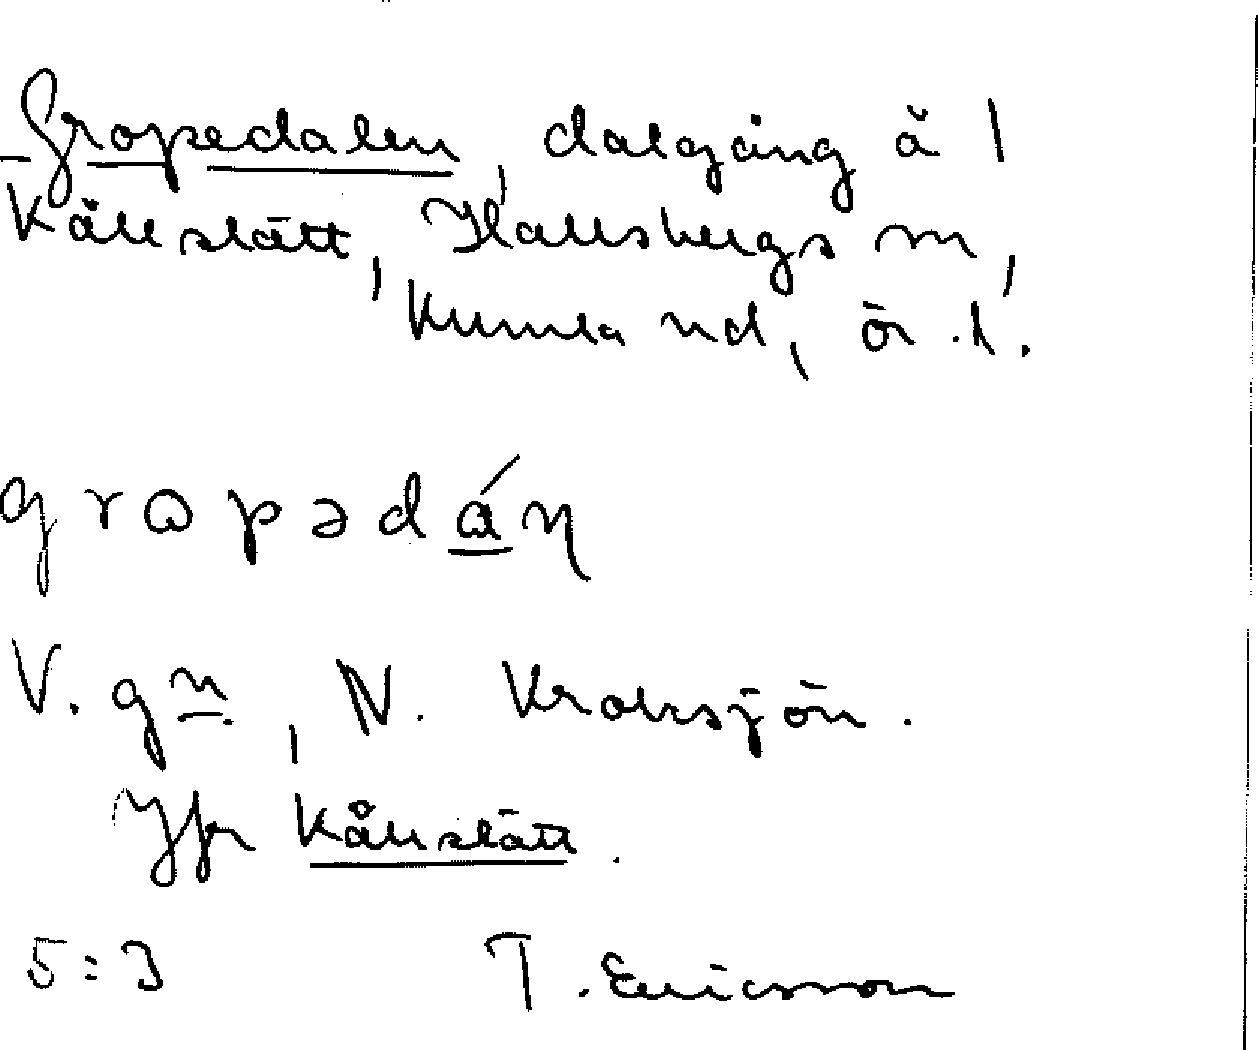 Gropedalen, dalgång å
Kållslätt, Hallsbergs sn,
Kumla hd, Ör. l.
gropədán
V. gm, N. Kroksjön.
Jfr Kållslätt.
5:3 T. Ericsson